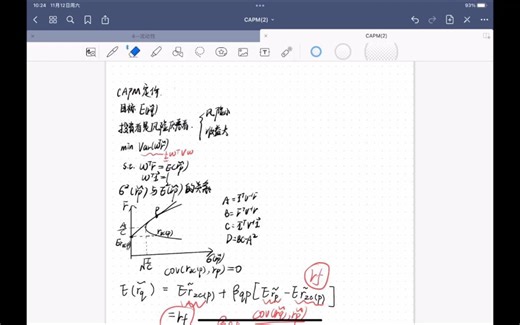 10:24 11月12日周六
93%
CAPM(2)
CAPM(2)
CAPM定价
目标 E(r̃q)
投资者是风险厌恶者
风险小
收益大
min Var(w̃r̃)
½wᵀVw
s.t. wᵀr̄ = E(r̃p)
wᵀ1 = 1
σ²(r̃p) 与 E(r̃p) 的关系
r̄
P
A/C
rzc(p)
√(1/C)
A = 1ᵀV⁻¹r̄
B = r̄ᵀV⁻¹r̄
C = 1ᵀV⁻¹1
D = BC-A²
cov(rzc(p), rp) = 0
rf
E(r̃q) = Er̃zc(p) + βqp[Er̃p - Er̃zc(p)]
= rf
cov(r̃q, r̃p)